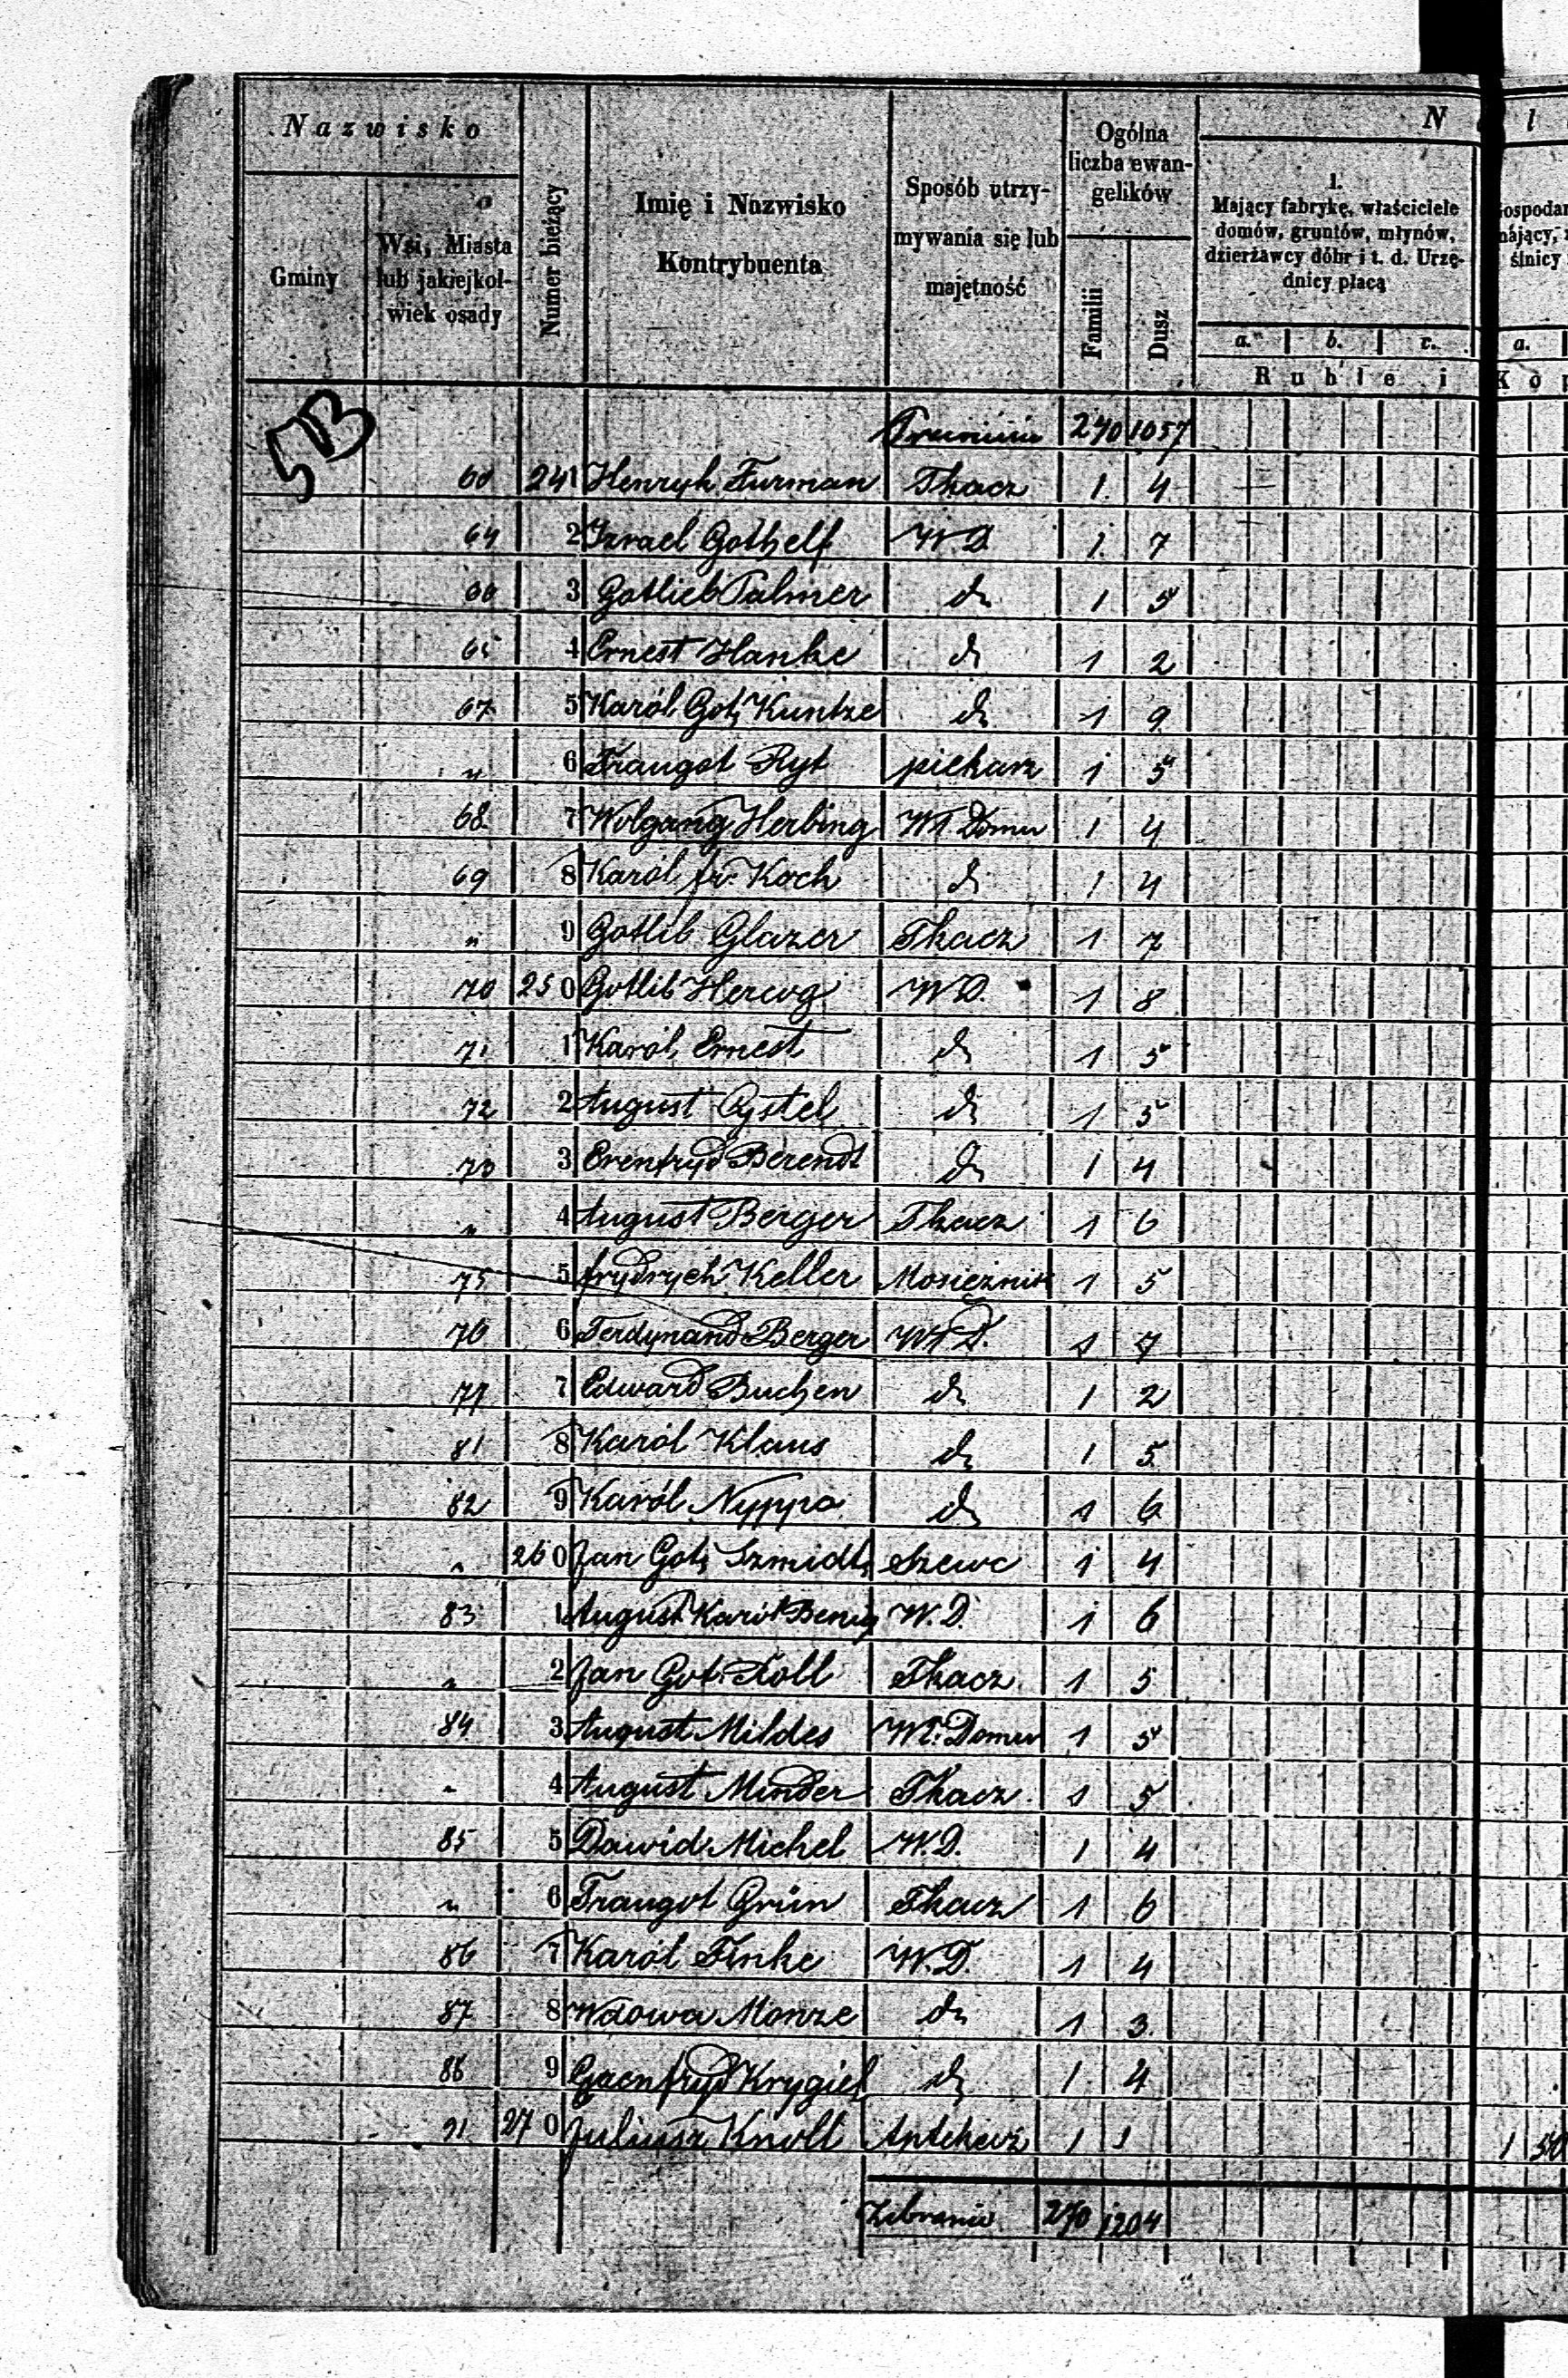 Nazwisko
Gminy
Wsi, Miasta lub jakiejkol-wiek osady
Numer bieżący
Imię i Nazwisko Kontrybuenta
Sposób utrzy-mywania się lub majętność
Ogólna liczba ewan-gelików
Familii
Dusz
N l
1.
Mający fabrykę, właściciele domów, gruntów, młynów, dzierżawcy dóbr i t. d. Urzę-dnicy płacą
a. b. c. a.
Ruble i Kop
5B
240 1057
241 Henryk Furman Tkacz 1 4
64 2 Izrael Gothelf W D 1 7
3 Gotlieb Palmer d 1 5
65 4 Ernest Hanke d 1 2
67 5 Karól Got. Kuntze d 1 9
" 6 Traugot Ryt piekarz 1 5
68 7 Wolgang Herbing Wł Domu 1 4
69 8 Karól fr. Koch d 1 4
" 9 Gotlib Glazer Tkacz 1 7
70 250 Gotlib Hercog W D. 1 8
71 1 Karól Ernest d 1 5
72 2 August d 1 5
73 3 Erenfryd Berendt d 1 4
" 4 August Berger Tkacz 1 6
75 5 frydrych Keller Mosiężnik 1 5
76 6 Ferdynand Berger Wł D. 1 7
77 7 Edward Buchen d 1 2
81 8 Karól Klaus d 1 5
82 9 Karól Nyppa d 1 6
" 260 Jan Got. Szmidt Szewc 1 4
83 1 August Karól W. D. 1 6
" 2 Jan Got. Tkacz 1 5
84 3 August Mildes Wł. Domu 1 5
" 4 August Minder Tkacz 1 5
85 5 Dawid Michel W. D. 1 4
" 6 Traugot Grün Tkacz 1 6
86 7 Karól Finke W. D. 1 4
87 8 Wdowa Monze d 1 3
88 9 Krygiel d 1 4
91 270 Juliusz Knoll Aptekarz 1 1 1 50
Zebranie 270 1204